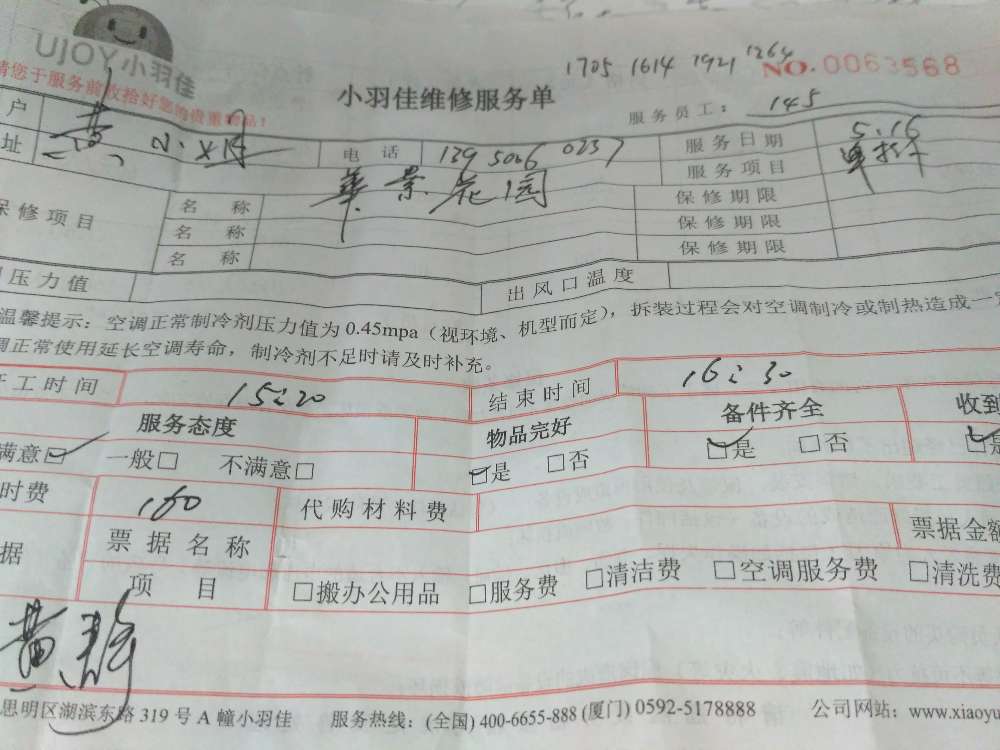 UJOY小羽佳
请您于服务前收拾好您的贵重物品!
1705 1614 1921 1264
NO.0063568
小羽佳维修服务单
服务员工: 145
户 黄 电话 服务日期 5.16
址 華景花园 服务项目
保修项目 名称 保修期限
名称 保修期限
名称 保修期限
压力值 出风口温度
温馨提示:空调正常制冷剂压力值为0.45mpa(视环境、机型而定),拆装过程会对空调制冷或制热造成一
调正常使用延长空调寿命,制冷剂不足时请及时补充。
工时间 15:20 结束时间 16:30
服务态度 物品完好 备件齐全 收到
满意☑ 一般□ 不满意□ ☑是 □否 ☑是 □否 ☑是
时费 160 代购材料费
据 票据名称 票据金额
项目 □搬办公用品 □服务费 □清洁费 □空调服务费 □清洗费
黄
思明区湖滨东路319号A幢小羽佳 服务热线:(全国)400-6655-888(厦门)0592-5178888 公司网站:www.xiaoyu